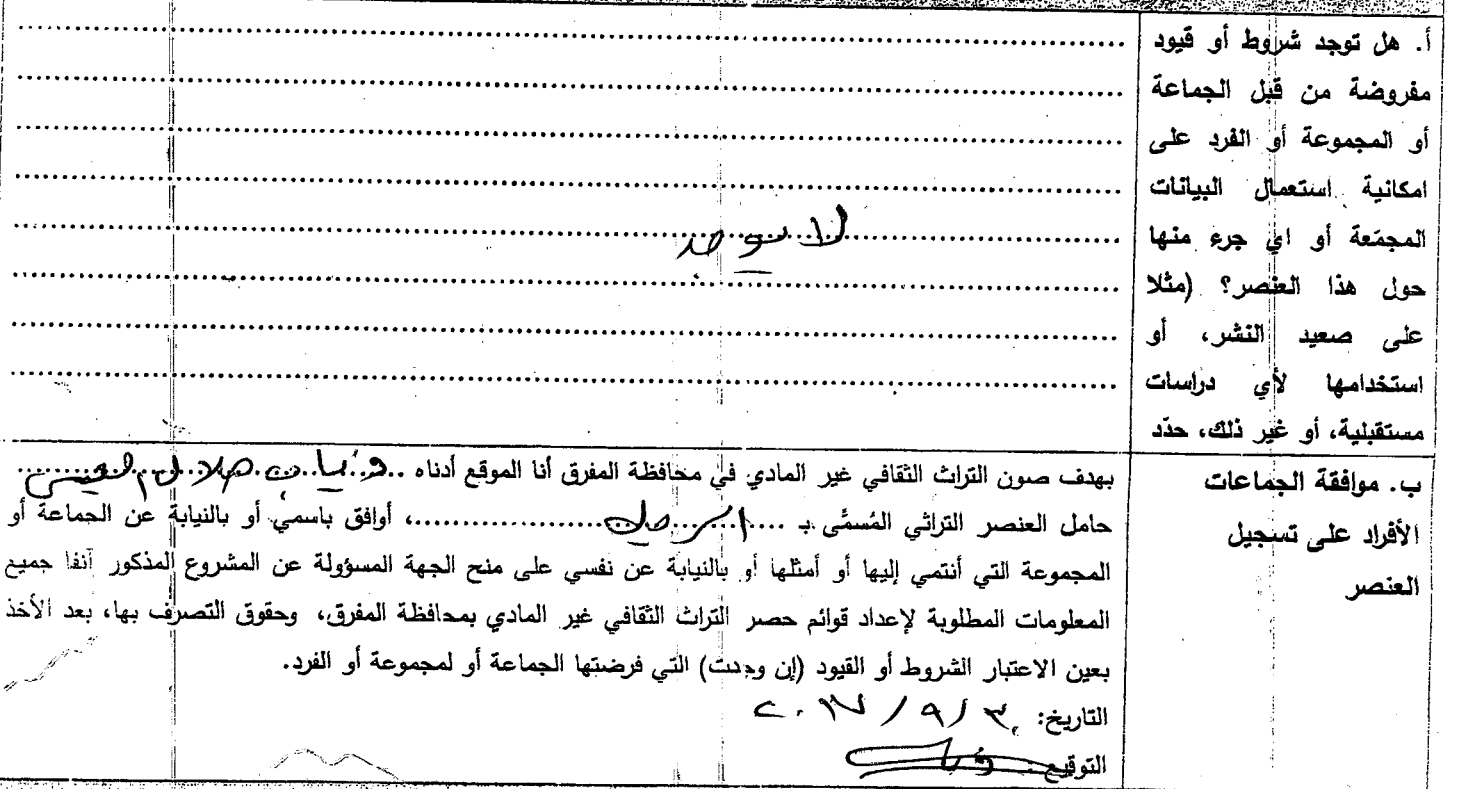 أ. هل توجد شروط أو قيود
مفروضة من قبل الجماعة
أو المجموعة أو الفرد على
امكانية استعمال البيانات
المجمّعة أو اي جرء منها
حول هذا العنصر؟ (مثلا
على صعيد النشر، أو
استخدامها لأي دراسات
مستقبلية، أو غير ذلك، حدّد
لا يوجد
ب. موافقة الجماعات
الأفراد على تسجيل
العنصر
بهدف صون التراث الثقافي غير المادي في محافظة المفرق أنا الموقع أدناه
حامل العنصر التراثي المُسمَّى بـ ..........، أوافق باسمي أو بالنيابة عن الجماعة أو
المجموعة التي أنتمي إليها أو أمثلها أو بالنيابة عن نفسي على منح الجهة المسؤولة عن المشروع المذكور آنفا جميع
المعلومات المطلوبة لإعداد قوائم حصر التراث الثقافي غير المادي بمحافظة المفرق، وحقوق التصرف بها، بعد الأخذ
بعين الاعتبار الشروط أو القيود (إن وجدت) التي فرضتها الجماعة أو لمجموعة أو الفرد.
التاريخ: ٣٠ / ٩ / ٢٠١٧
التوقيع: